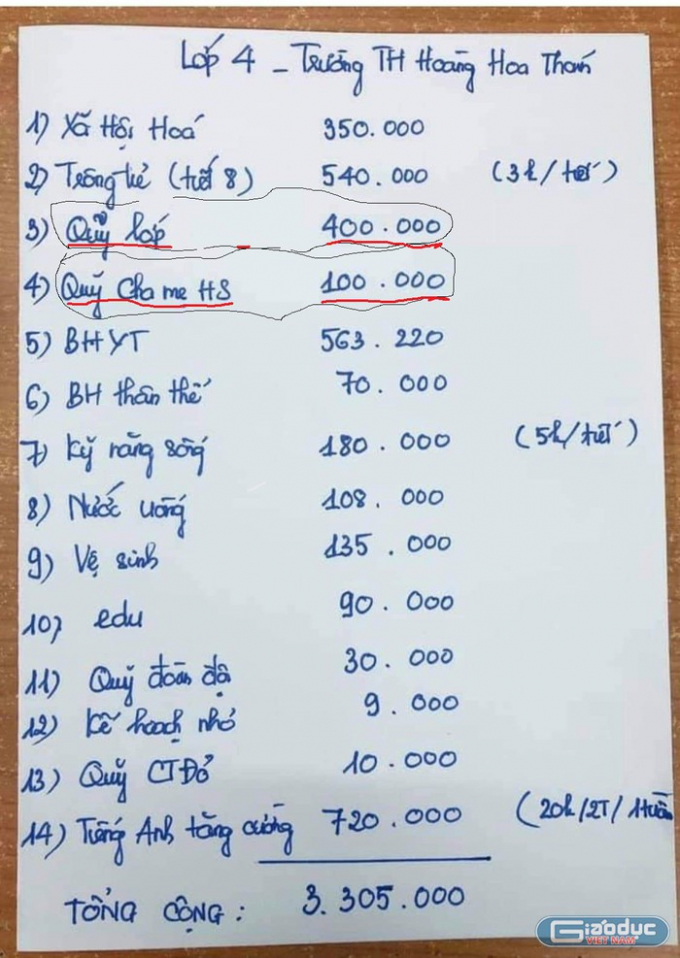 Lớp 4 - Trường TH Hoàng Hoa Thám
1) Xã Hội Hoá 350.000
2) Trông trẻ (tiết 8) 540.000 (3k/tiết)
3) Quỹ lớp 400.000
4) Quỹ Cha mẹ HS 100.000
5) BHYT 563.220
6) BH thân thể 70.000
7) Kỹ năng sống 180.000 (5k/tiết)
8) Nước uống 108.000
9) Vệ sinh 135.000
10) edu 90.000
11) Quỹ đoàn đội 30.000
12) Kế hoạch nhỏ 9.000
13) Quỹ CTĐỏ 10.000
14) Tiếng Anh tăng cường 720.000 (20k/2T/1tuần
TỔNG CỘNG: 3.305.000
Giáo dục
VIỆT NAM